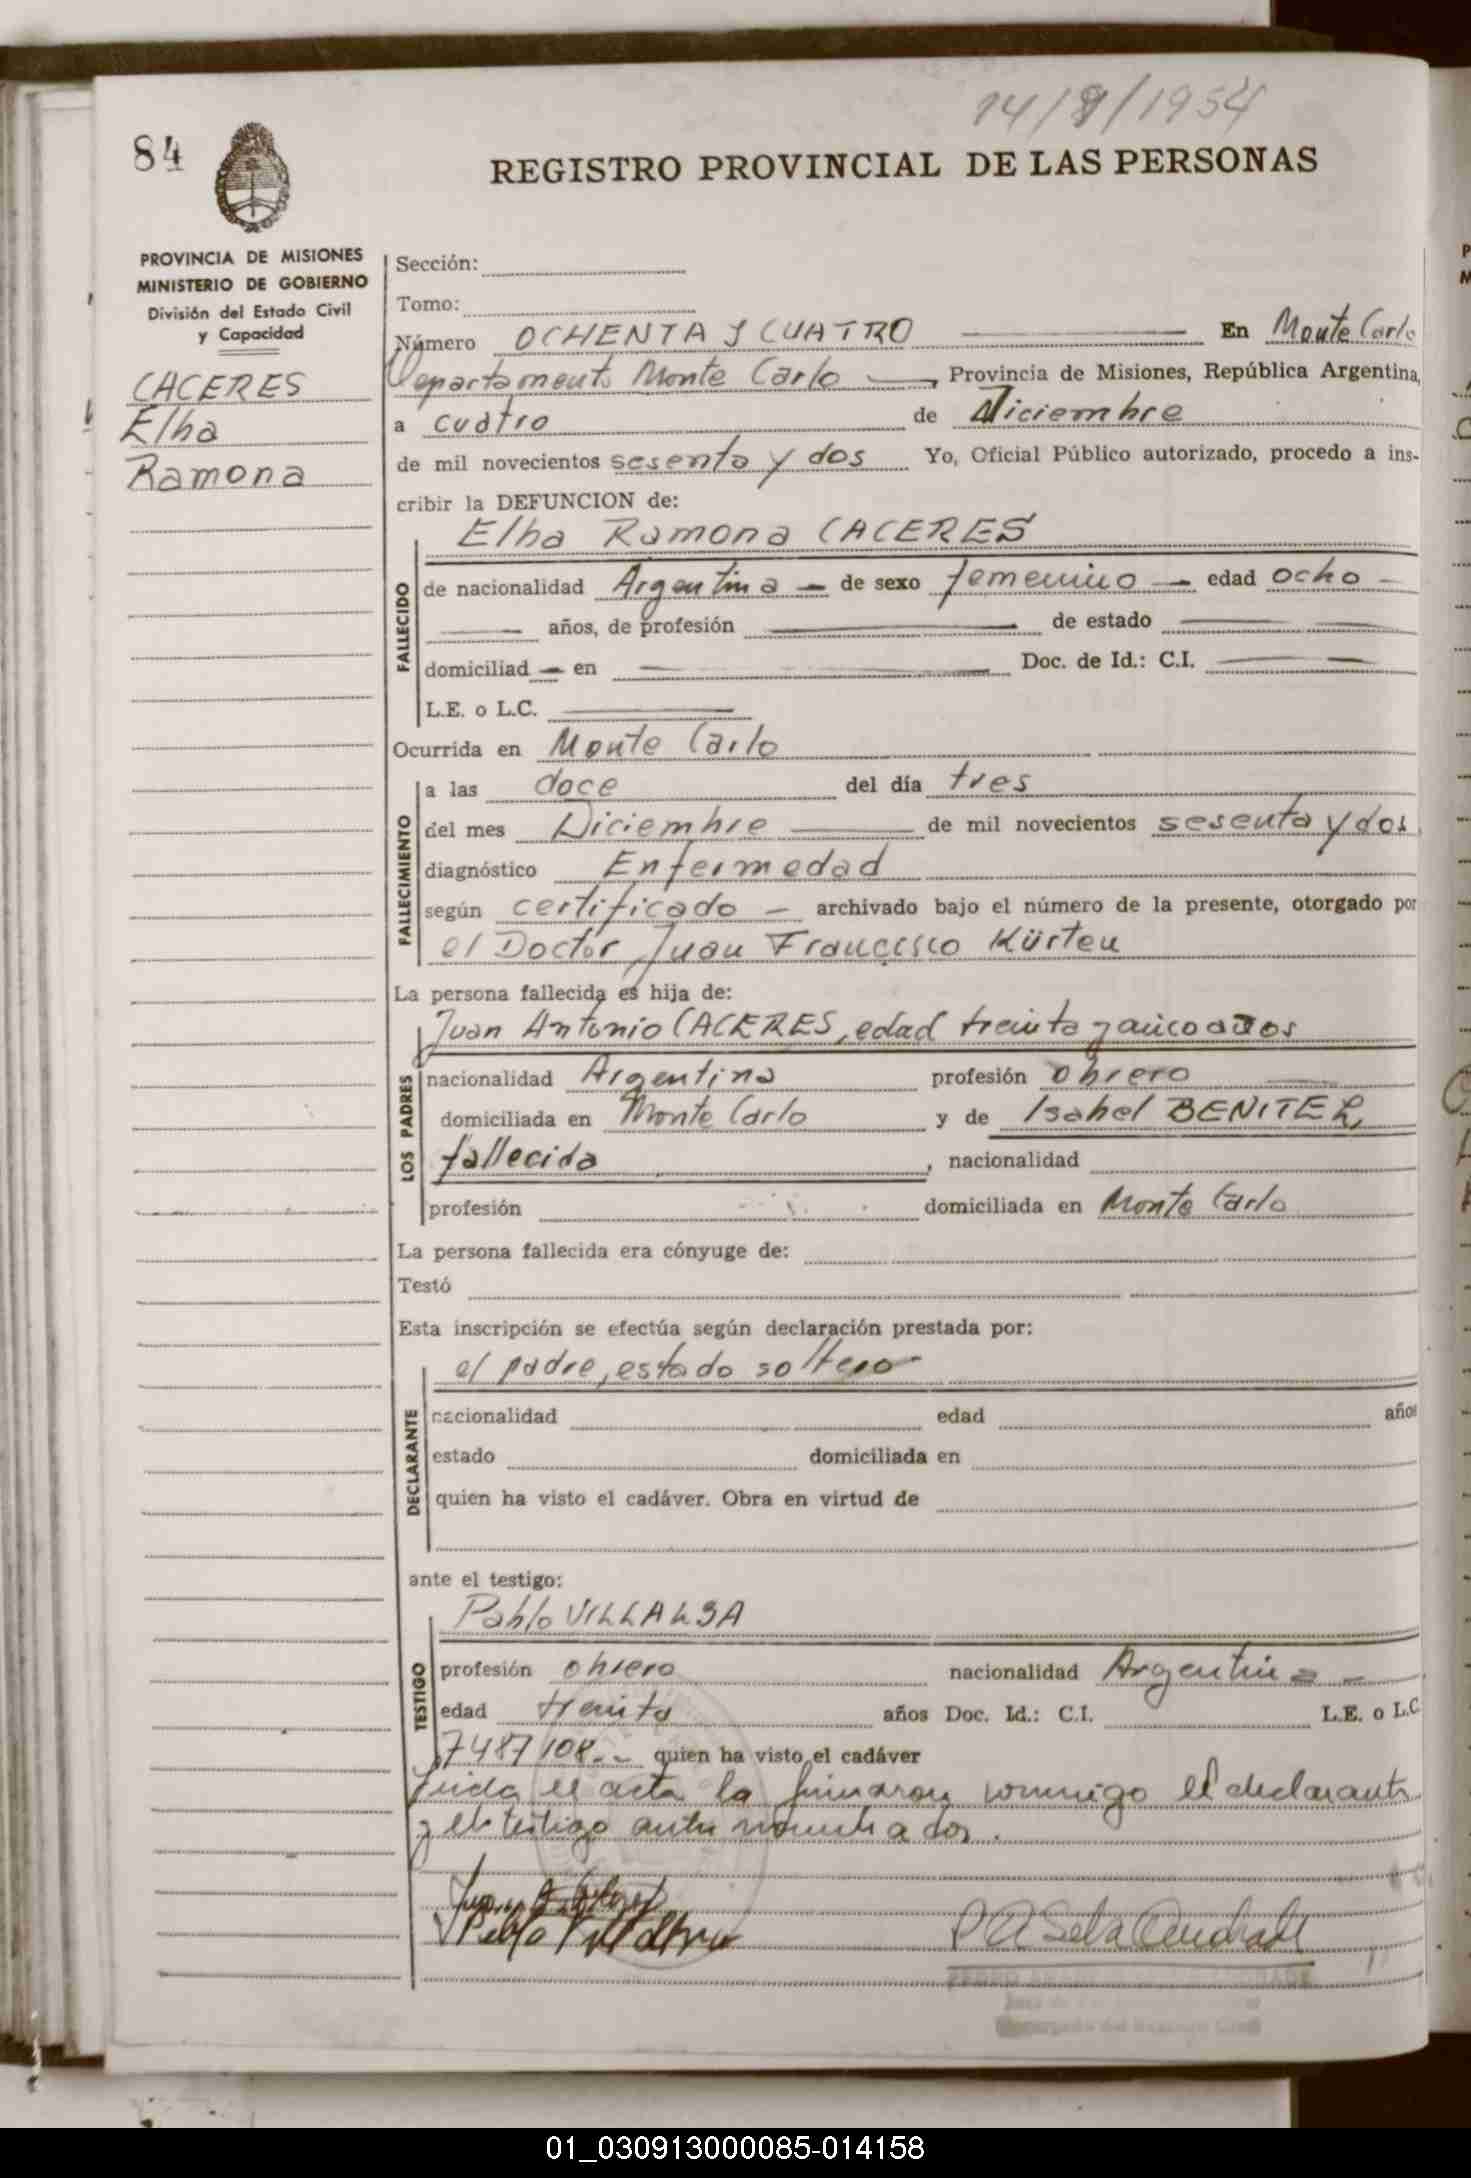 14/9/1954
84
REGISTRO PROVINCIAL DE LAS PERSONAS
PROVINCIA DE MISIONES
MINISTERIO DE GOBIERNO
División del Estado Civil
y Capacidad
CACERES
Elba
Ramona
Sección:
Tomo:
Número OCHENTA Y CUATRO En Monte Carlo
Departamento Monte Carlo Provincia de Misiones, República Argentina,
a cuatro de Diciembre
de mil novecientos sesenta y dos Yo, Oficial Público autorizado, procedo a ins-
cribir la DEFUNCION de:
Elba Ramona CACERES
FALLECIDO
de nacionalidad Argentina — de sexo femenino — edad ocho —
años, de profesión — de estado —
domiciliad — en — Doc. de Id.: C.I. —
L.E. o L.C. —
Ocurrida en Monte Carlo
FALLECIMIENTO
a las doce del día tres
del mes Diciembre — de mil novecientos sesenta y dos
diagnóstico Enfermedad
según certificado — archivado bajo el número de la presente, otorgado por
el Doctor Juan Francisco Kürten
La persona fallecida es hija de:
LOS PADRES
Juan Antonio CACERES, edad treinta y cinco años
nacionalidad Argentina profesión obrero
domiciliada en Monte Carlo y de Isabel BENITEZ,
fallecida , nacionalidad
profesión domiciliada en Monte Carlo
La persona fallecida era cónyuge de:
Testó
Esta inscripción se efectúa según declaración prestada por:
DECLARANTE
el padre, estado soltero
nacionalidad edad años
estado domiciliada en
quien ha visto el cadáver. Obra en virtud de
ante el testigo:
TESTIGO
Pablo VILLALBA
profesión obrero nacionalidad Argentina —
edad treinta años Doc. Id.: C.I. L.E. o L.C.
7487108.- quien ha visto el cadáver
Leida el acta la firmaron conmigo el declarante
y el testigo antes nombrados.
Pablo Villalba
01_030913000085-014158